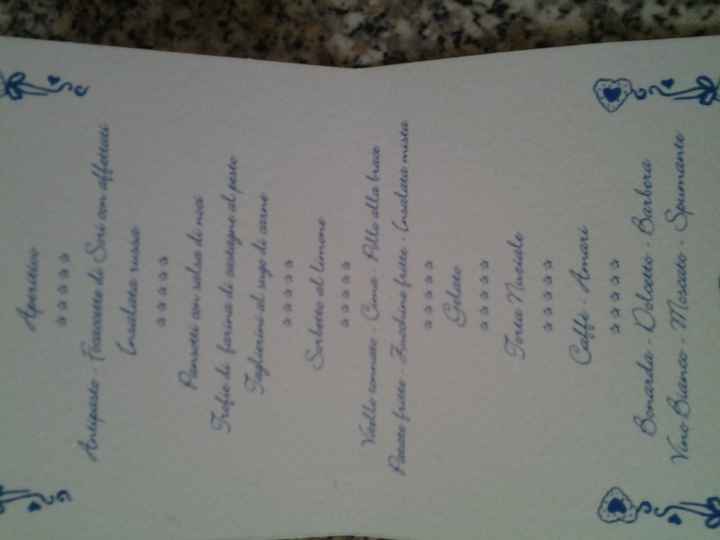 Aperitivo
Antipasto - Focaccette di Sori con affettati
Insalata russa
Pansotti con salsa di noci
Trofie di farina di castagne al pesto
Taglierini al sugo di carne
Sorbetto al limone
Vitello tonnato - Cima - Pollo alla brace
Patate fritte - Zucchine fritte - Insalata mista
Gelato
Torta Nuziale
Caffè - Amari
Bonarda - Dolcetto - Barbera
Vino Bianco - Moscato - Spumante